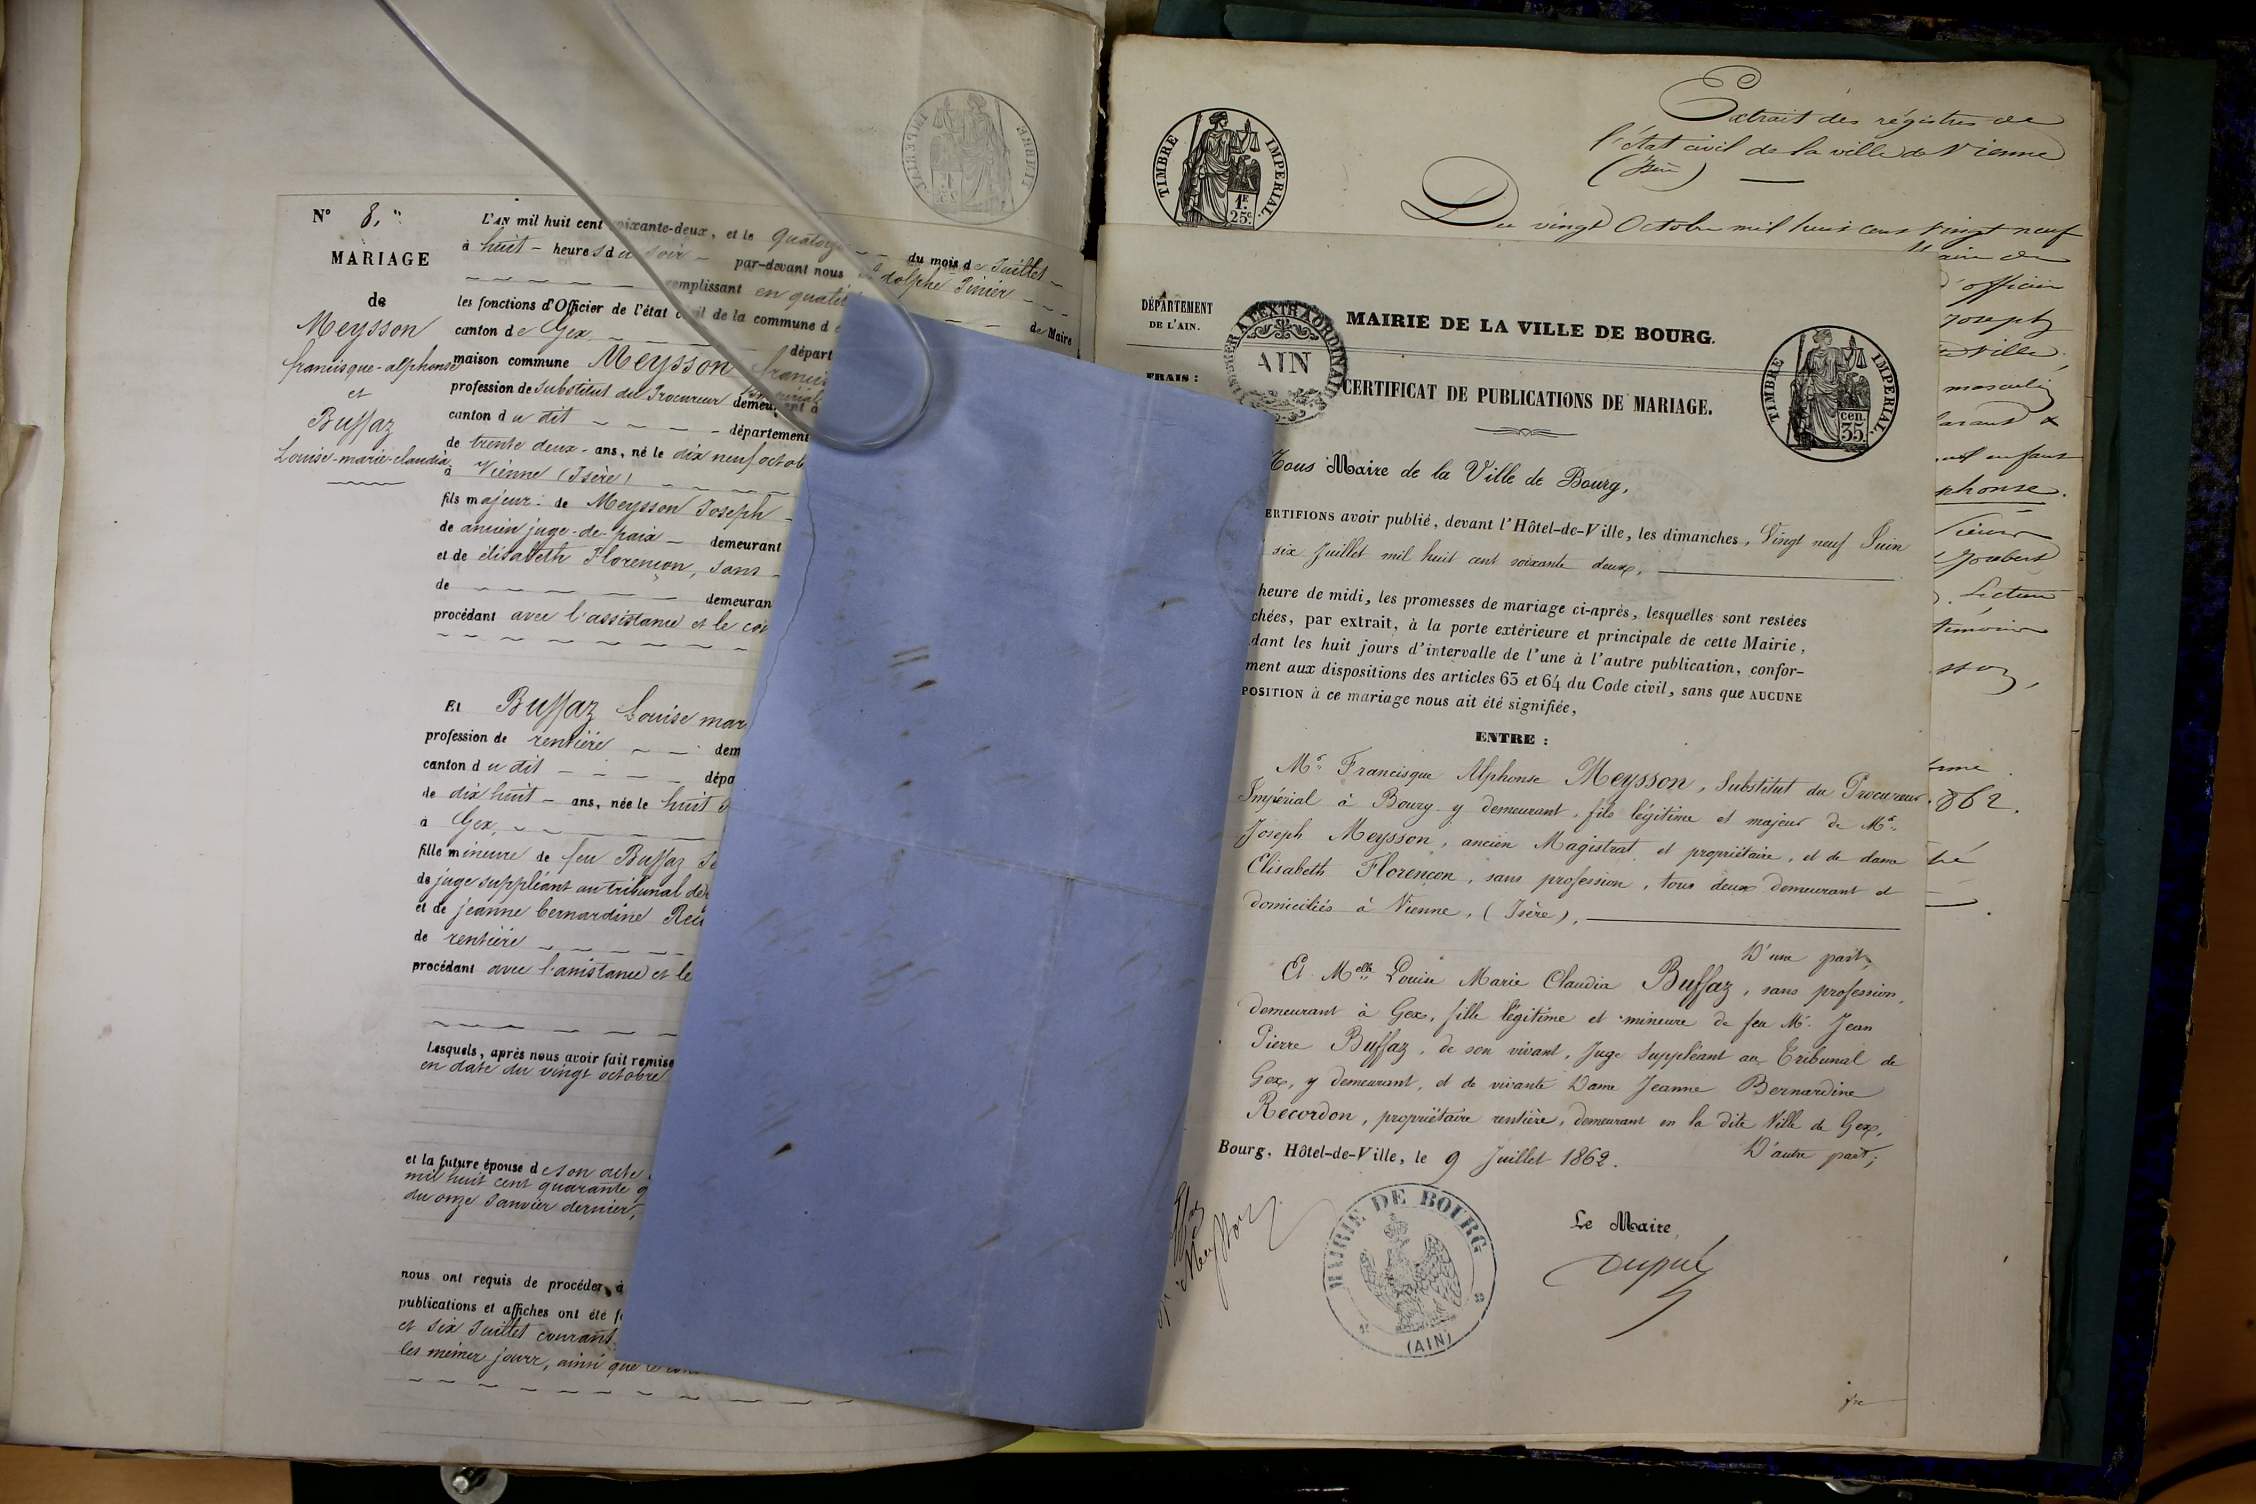 N° 8.
MARIAGE
de
Meysson
francisque-alphonse
et
Buffaz
Louise-marie-claudia
L'AN mil huit cent soixante-deux, et le quatorze du mois de Juillet
à huit heures du soir par-devant nous Adolphe Pinier
remplissant en
de Maire
les fonctions d'Officier de l'état civil de la commune d
canton de Gex départ
maison commune Meysson francis
profession de substitut du Procureur Impérial demeurant à
canton du dit département
de trente deux ans, né le dix neuf octob
à Vienne (Isère)
fils majeur de Meysson Joseph
de ancien juge-de-paix demeurant
et de élisabeth Florençon, sans
de demeuran
procédant avec l'assistance et le con
Et Buffaz Louise mar
profession de rentière dem
canton du dit dépa
de dix huit ans, née le huit
à Gex,
fille mineure de feu Buffaz
de juge suppléant au tribunal de
et de jeanne bernardine Rec
de rentière
procédant avec l'assistance et le
Lesquels, après nous avoir fait remise
en date du vingt octobre
et la future épouse de son acte
mil huit cent quarante
du onze Janvier dernier,
nous ont requis de procéder à
publications et affiches ont été f
et six Juillet courant
les mêmes jours, ainsi que le
TIMBRE IMPÉRIAL
1F. 25c.
Extrait des régistres de
l'état civil de la ville de Vienne
(Isère)
Du vingt Octobre mil huit cent vingt neuf
maire de
d'officier
Joseph
ville,
masculin
enfant
phonse.
Joubert
Lecture
témoins
sson,
862.
DÉPARTEMENT
DE L'AIN.
FRAIS :
TIMBRE A L'EXTRAORDINAIRE
AIN
MAIRIE DE LA VILLE DE BOURG.
TIMBRE IMPÉRIAL
cen. 35.
CERTIFICAT DE PUBLICATIONS DE MARIAGE.
Nous Maire de la Ville de Bourg,
ERTIFIONS avoir publié, devant l'Hôtel-de-Ville, les dimanches, Vingt neuf Juin
six Juillet mil huit cent soixante deux,
heure de midi, les promesses de mariage ci-après, lesquelles sont restées
chées, par extrait, à la porte extérieure et principale de cette Mairie,
dant les huit jours d'intervalle de l'une à l'autre publication, confor-
ment aux dispositions des articles 63 et 64 du Code civil, sans que AUCUNE
POSITION à ce mariage nous ait été signifiée,
ENTRE :
Mr. Francisque Alphonse Meysson, Substitut du Procureur
Impérial à Bourg y demeurant, fils légitime et majeur de Mr.
Joseph Meysson, ancien Magistrat et propriétaire, et de dame
Elisabeth Florençon, sans profession, tous deux demeurant et
domiciliés à Vienne, (Isère),
D'une part,
Et Melle Louise Marie Claudia Buffaz, sans profession,
demeurant à Gex, fille légitime et mineure de feu Mr. Jean
Pierre Buffaz, de son vivant, Juge Suppléant au Tribunal de
Gex, y demeurant, et de vivante Dame Jeanne Bernardine
Recordon, propriétaire rentière, demeurant en la dite Ville de Gex,
D'autre part;
Bourg, Hôtel-de-Ville, le 9 Juillet 1862.
Le Maire,
Dupué
MAIRIE DE BOURG
(AIN)
Meysson